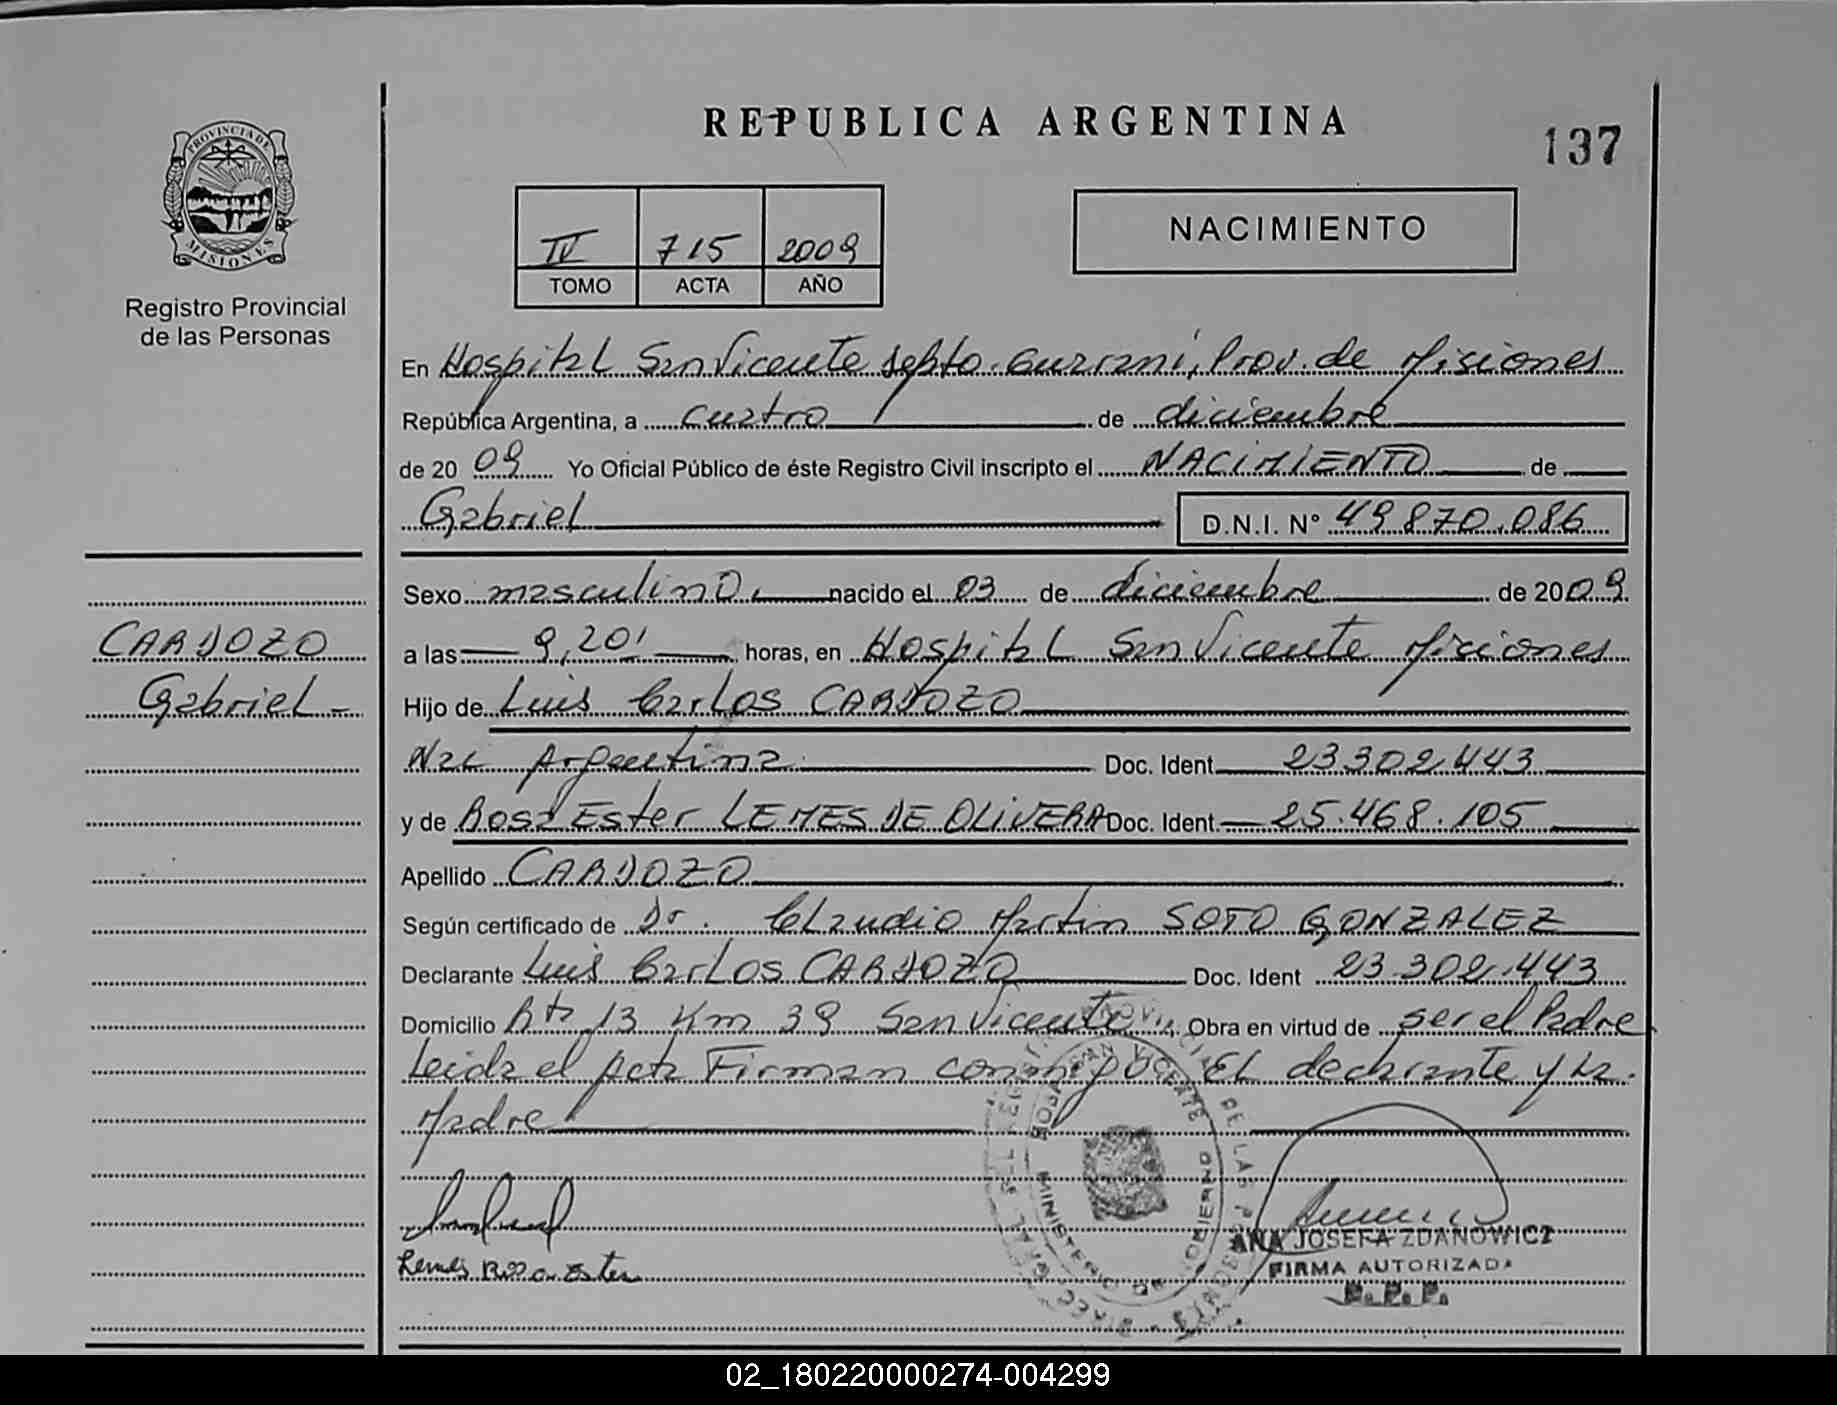 REPUBLICA ARGENTINA
137
PROVINCIA DE
MISIONES
Registro Provincial
de las Personas
IV 715 2009
TOMO ACTA AÑO
NACIMIENTO
En Hospital San Vicente Depto. Guarani, Prov. de Misiones
República Argentina, a cuatro de diciembre
de 2009 Yo Oficial Público de éste Registro Civil inscripto el NACIMIENTO de
Gabriel D.N.I. N° 49870.086
CARDOZO
Gabriel -
Sexo masculino nacido el 03 de diciembre de 2009
a las 9,20' horas, en Hospital San Vicente Misiones
Hijo de Luis Carlos CARDOZO
Nac Argentina Doc. Ident 23302.443
y de Rosa Ester LEMES DE OLIVERA Doc. Ident. 25.468.105
Apellido CARDOZO
Según certificado de Dr. Claudio Martin SOTO GONZALEZ
Declarante Luis Carlos CARDOZO Doc. Ident 23.302.443
Domicilio Rta 13 Km 39 San Vicente Obra en virtud de ser el Padre
Leida el Acta Firman conmigo El declarante y la
Madre
Lemes Rosa Ester
HOSP. SAN VICENTE
MINISTERIO DE GOBIERNO
ANA JOSEFA ZDANOWICZ
FIRMA AUTORIZADA
R.P.P.
02_180220000274-004299